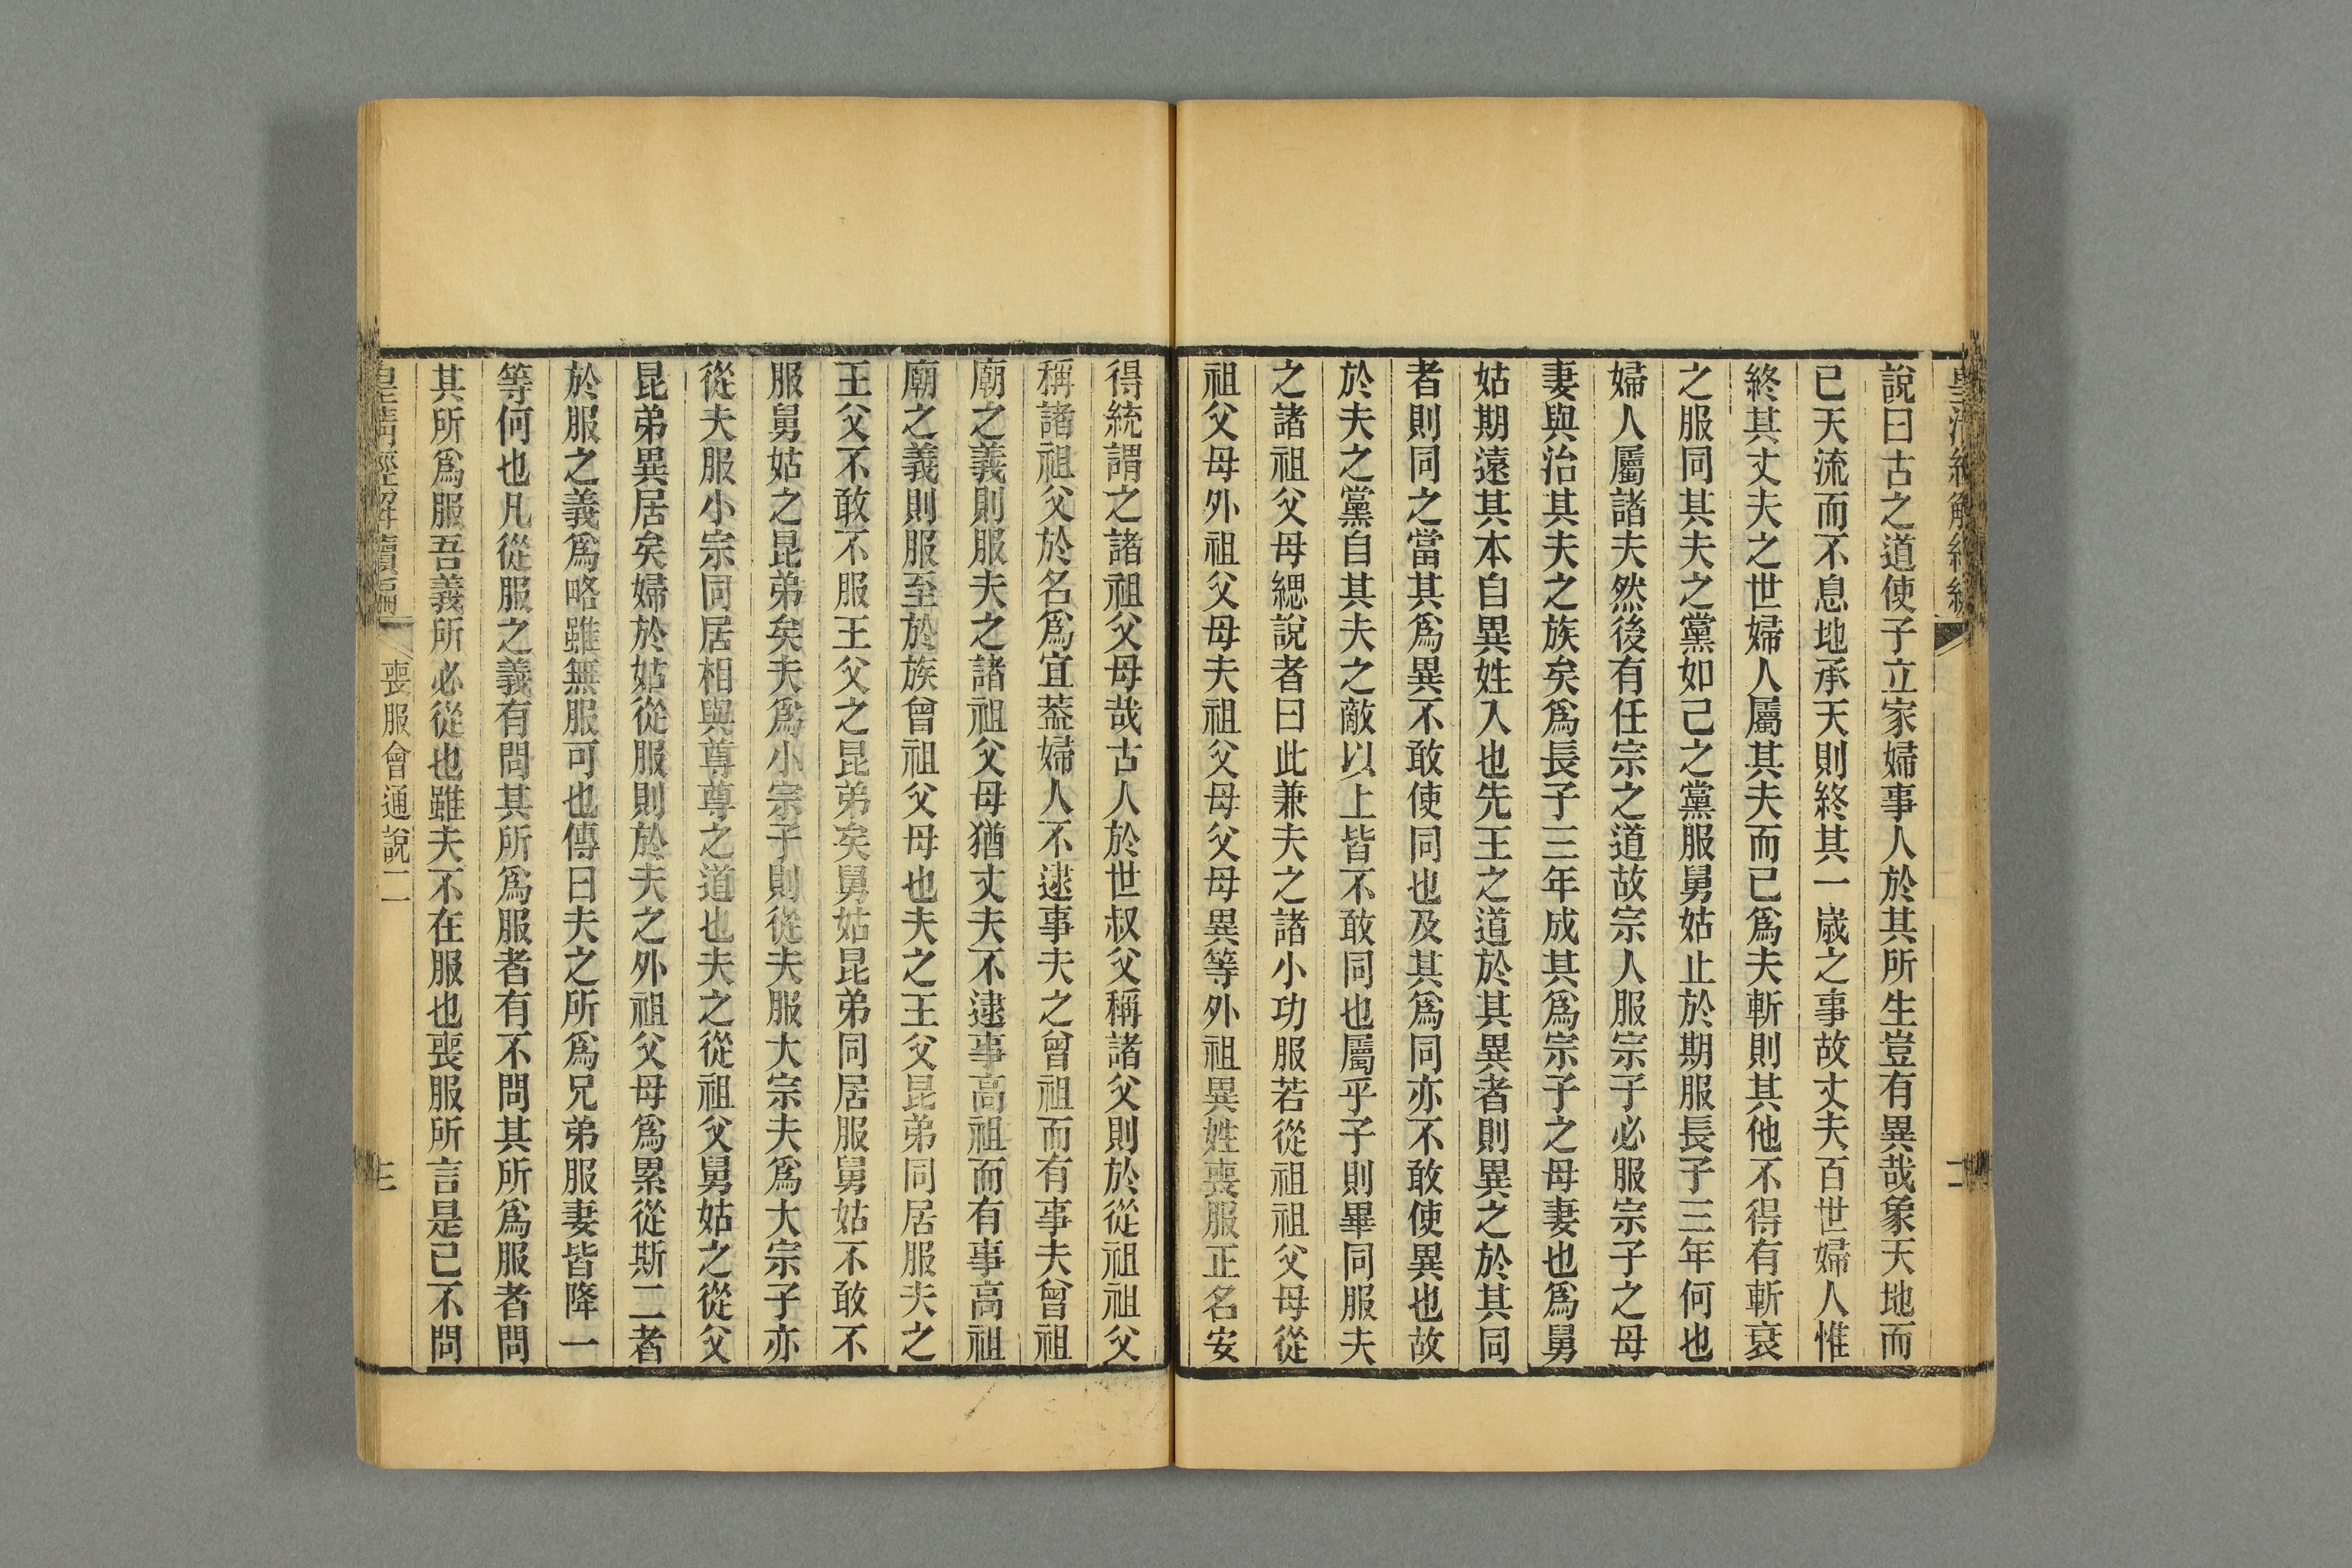 說曰古之道使子立家婦事人於其所生豈有異哉象天地而
已天流而不息地承天則終其一歲之事故丈夫百世婦人惟
終其丈夫之世婦人屬其夫而已爲夫斬則其他不得有斬衰
之服同其夫之黨如己之黨服舅姑止於期服長子三年何也
婦人屬諸夫然後有任宗之道故宗人服宗子必服宗子之母
妻與治其夫之族矣爲長子三年成其爲宗子之母妻也爲舅
姑期遠其本自異姓入也先王之道於其異者則異之於其同
者則同之當其爲異不敢使同也及其爲同亦不敢使異也故
於夫之黨自其夫之敵以上皆不敢同也屬乎子則畢同服夫
之諸祖父母緦說者曰此兼夫之諸小功服若從祖祖父母從
祖父母外祖父母夫祖父母父母異等外祖異姓喪服正名安
得統謂之諸祖父母哉古人於世叔父稱諸父則於從祖祖父
稱諸祖父於名爲宜葢婦人不逮事夫之曾祖而有事夫曾祖
廟之義則服夫之諸祖父母猶丈夫不逮事高祖而有事高祖
廟之義則服至於族曾祖父母也夫之王父昆弟同居服夫之
王父不敢不服王父之昆弟矣舅姑昆弟同居服舅姑不敢不
服舅姑之昆弟矣夫爲小宗子則從夫服大宗夫爲大宗子亦
從夫服小宗同居相與尊尊之道也夫之從祖父舅姑之從父
昆弟異居矣婦於姑從服則於夫之外祖父母爲累從斯二者
於服之義爲略雖無服可也傳曰夫之所爲兄弟服妻皆降一
等何也凡從服之義有問其所爲服者有不問其所爲服者問
其所爲服吾義所必從也雖夫不在服也喪服所言是已不問
皇淸經解續編
喪服會通說二